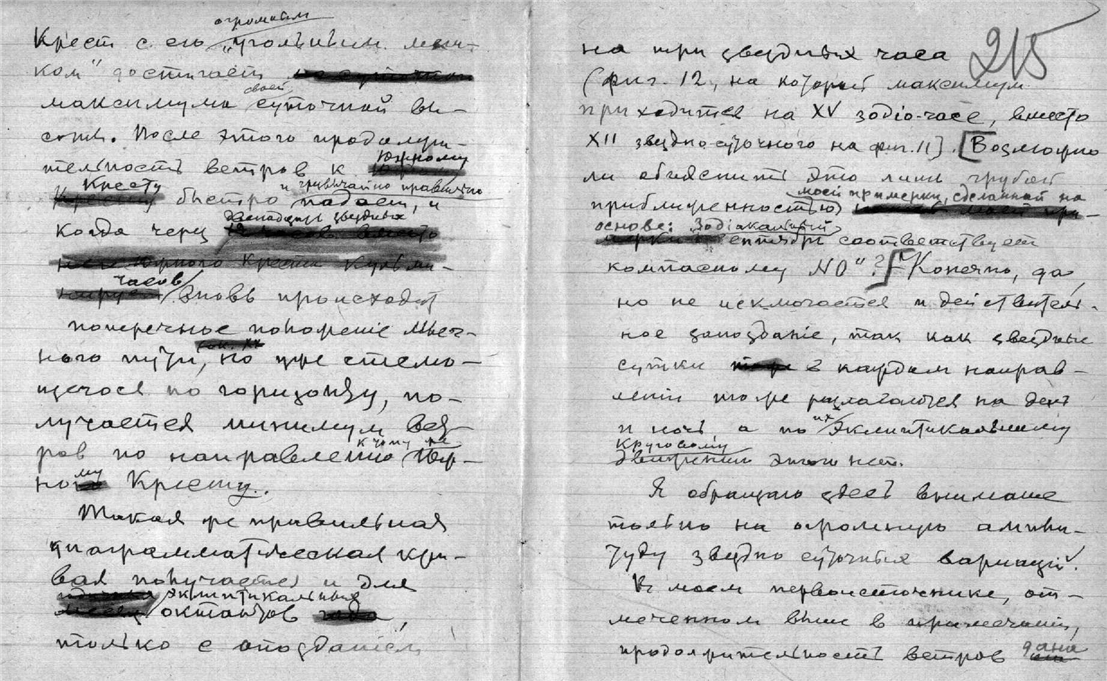 огромным
Крест с его „угольным меш-
ком" достигает
максимума своей суточной вы-
соты. После этого продолжи-
тельность ветров к Южному
Кресту быстро и чрезвычайно правильно падает, и
когда через двенадцать звездных
часов вновь происходит
поперечное положение Млеч-
ного пути, но уже стелю-
щегося по горизонту, по-
лучается минимум вет-
ров по направлению к тому же Юж-
ному Кресту.
Такая же правильная
диаграмматическая кри-
вая получается и для
эклиптикальных
октантов,
только с опозданием
215
на три звездных часа
(фиг. 12, на которой максимум
приходится на XV зодіо-часе, вместо
XII звездносуточного на фиг. 11). [Возможно
ли объяснить это лишь грубой
приближенностью моей примерки, сделанной на
основе: Зодіакальный
сентябрь соответствует
компасному NO"?] Конечно, да,
но не исключается и действитель-
ное запоздание, так как звездные
сутки в каждом направ-
лении тоже разлагаются на день
и ночь а по их эклиптикальному
круговому
движению этого нет.
Я обращаю здесь внимание
только на огромную ампли-
туду звездно суточных вариаций.
В моем первоисточнике, от-
меченном выше в примечании,
продолжительность ветров дана